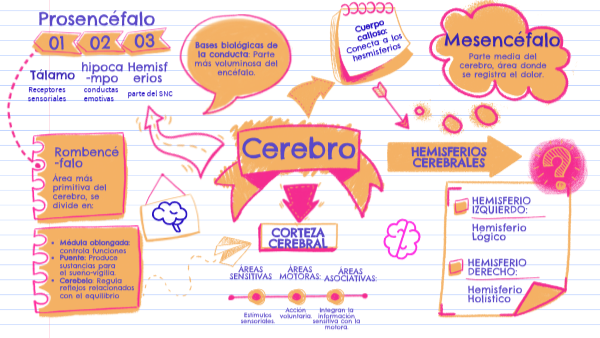 Prosencéfalo
01 02 03
Tálamo
Receptores
sensoriales
hipoca
-mpo
conductas
emotivas
Hemisf
erios
parte del SNC
Bases biológicas de
la conducta: Parte
más voluminosa del
encéfalo.
Cuerpo
calloso:
Conecta a los
hesmisferios
Mesencéfalo
Parte media del
cerebro, área donde
se registra el dolor.
Rombencé
-falo
Área más
primitiva del
cerebro, se
divide en:
Médula oblongada:
controla funciones
Puente: Produce
sustancias para
el sueño-vigilia
Cerebelo: Regula
reflejos relacionados
con el equilibrio
Cerebro
HEMISFERIOS
CEREBRALES
?
CORTEZA
CEREBRAL
ÁREAS
SENSITIVAS
Estímulos
sensoriales.
ÁREAS
MOTORAS:
Acción
voluntaria.
ÁREAS
ASOCIATIVAS:
Integran la
información
sensitiva con la
motora.
HEMISFERIO
IZQUIERDO:
Hemisferio
Logico
HEMISFERIO
DERECHO:
Hemisferio
Holístico